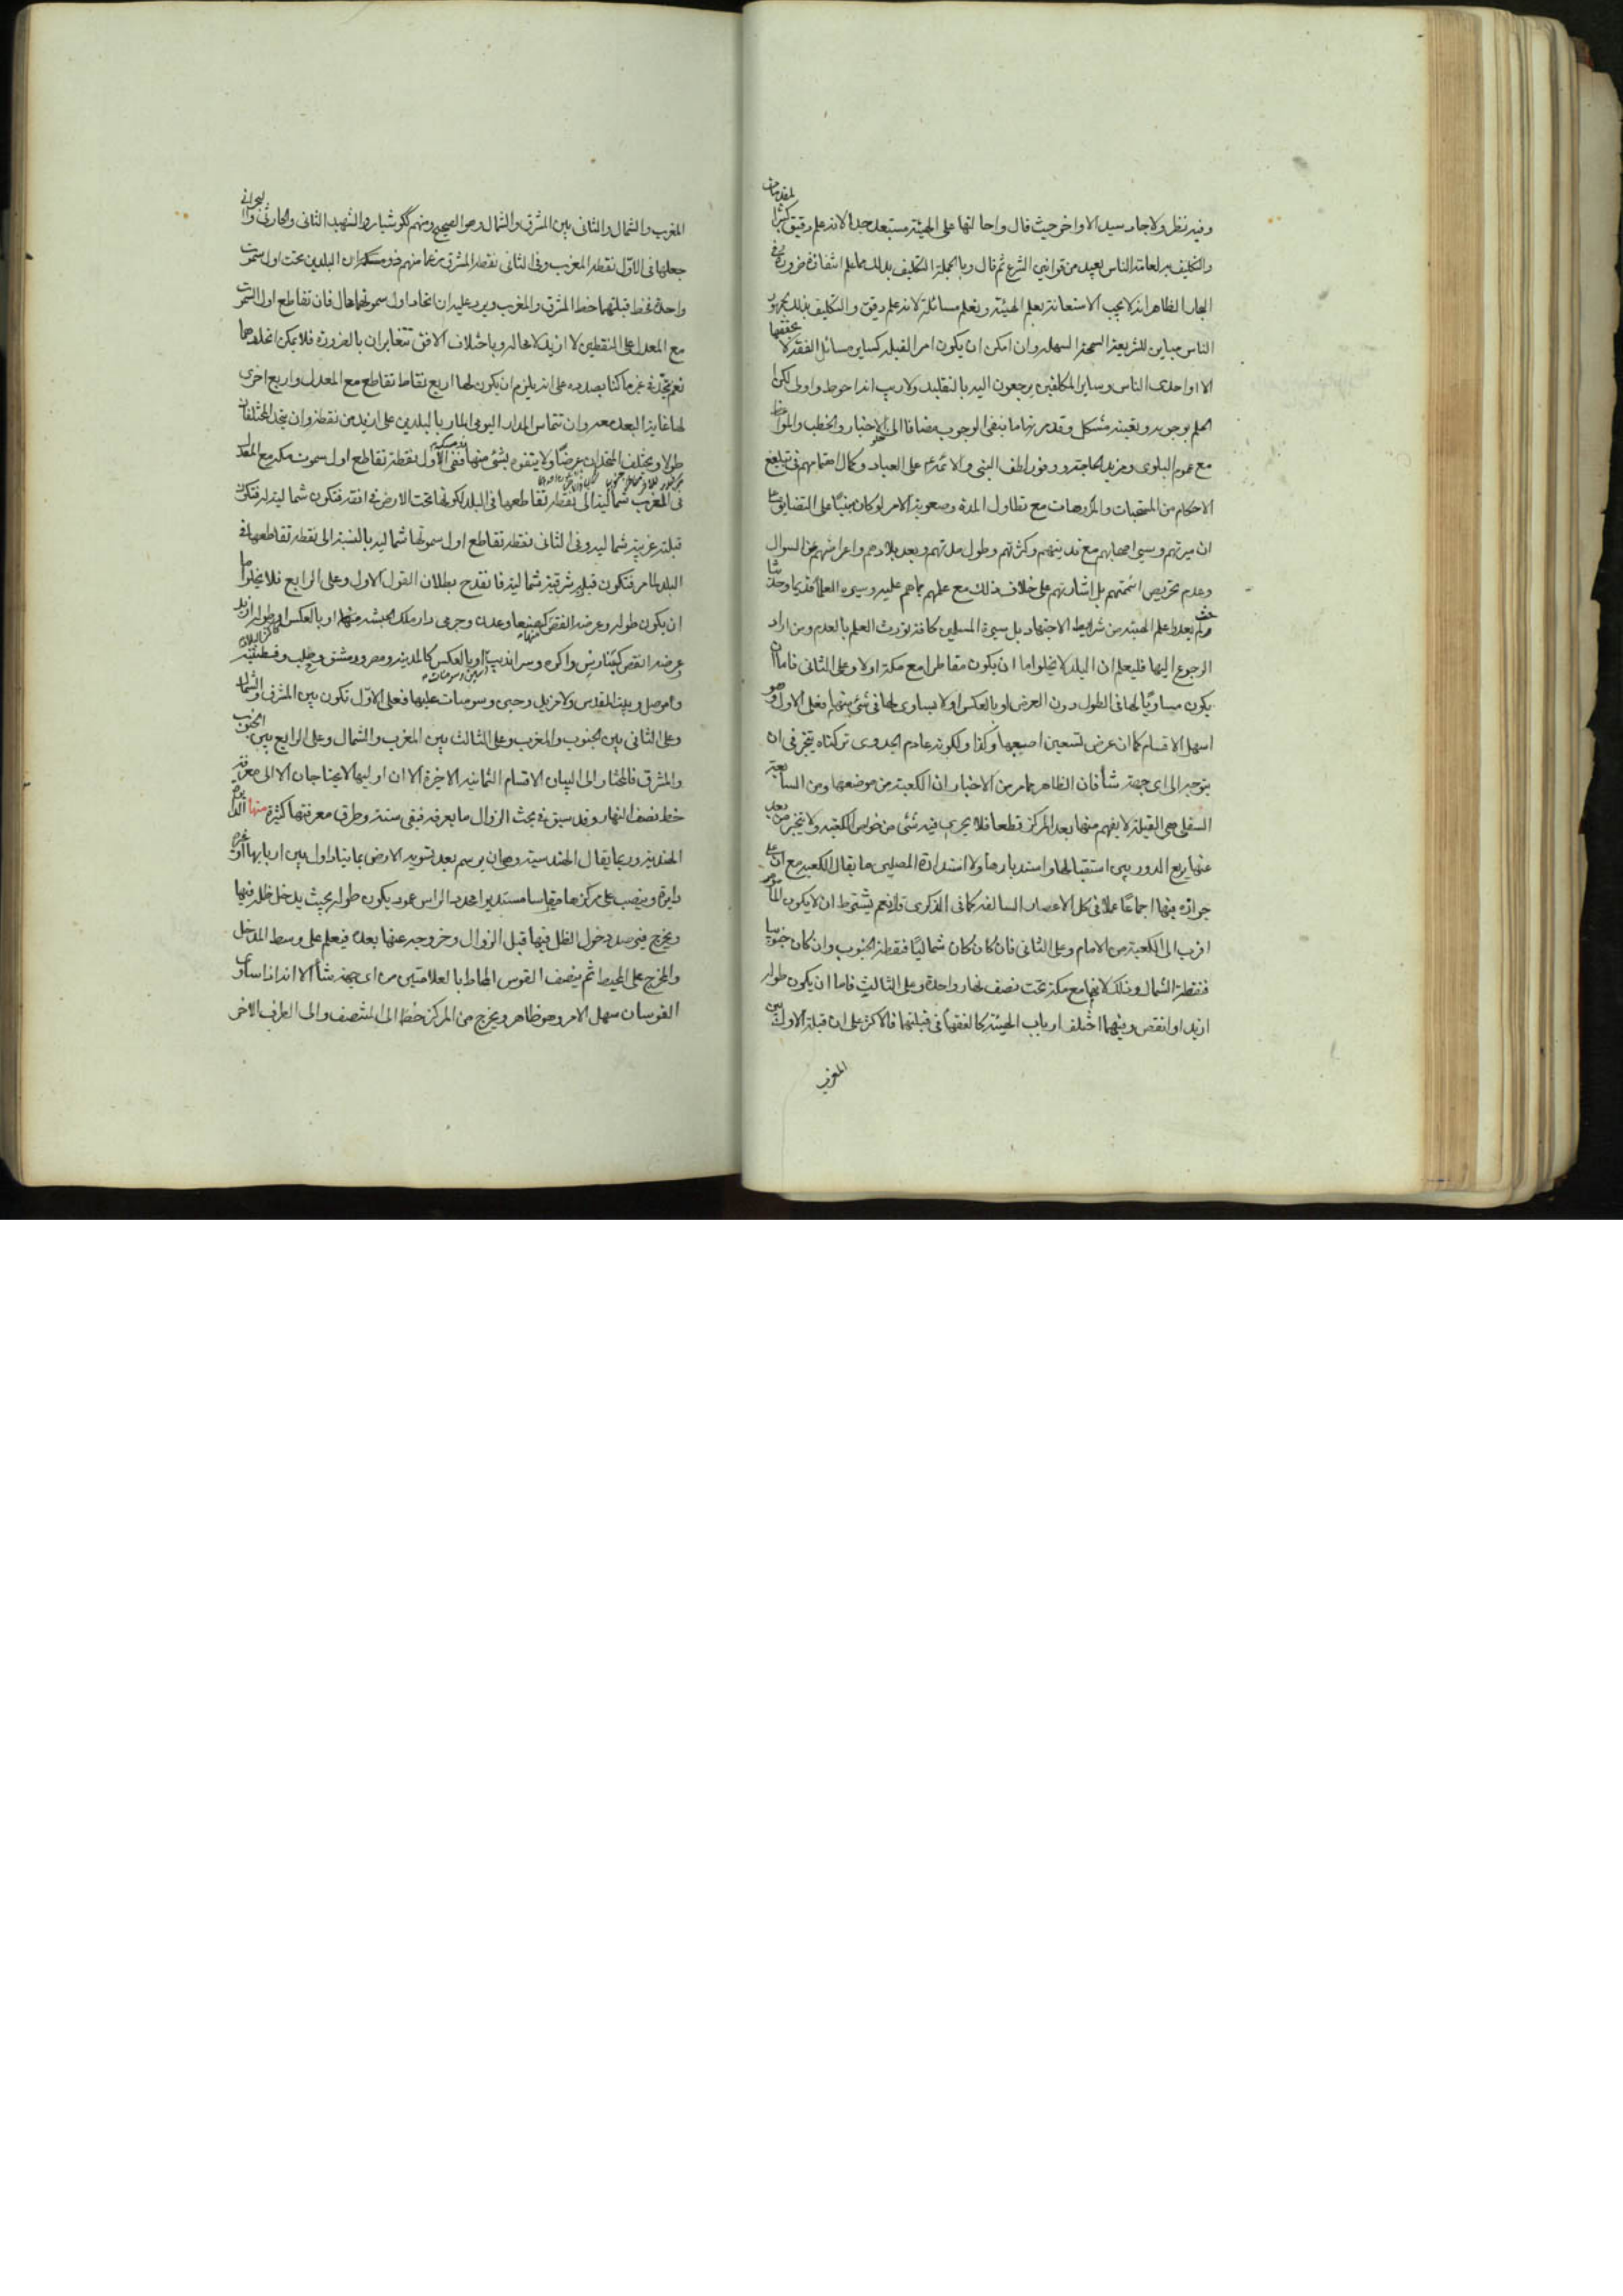 وفيه نظر ولاجاد سيد الاواخر حيث قال واحالتها على الهيئة مستبعد جدا لانه علم دقيق كثير المقدمات
والتكليف به لعامة الناس بعيد من قوانين الشرع ثم قال وبالجملة التكليف بذلك مما علم انتفاؤه ضرورة وفي
البحار الظاهر انه لا يجب الاستعانة بعلم الهيئة وتعلم مسائله لانه علم دقيق والتكليف بذلك لجمهور
الناس مباين للشريعة السمحة السهلة وان امكن ان يكون امر القبلة كساير مسائل الفقه لا يحققها
الا اواحدى الناس وساير المكلفين يرجعون اليه بالتقليد ولا ريب انه احوط واولى لكن
العلم بوجوبه وتعينه مشكل وقد مر منا ما ينفى الوجوب مضافا الى الاخبار والخطب والمواعظ
مع عموم البلوى ومزيد الحاجة ووفور لطف النبى والائمة على العباد وكمال اهتمامهم فى تبليغ
الاحكام من المستحبات والمكروهات مع تطاول المدة وصعوبة الامر لو كان مبنيا على التضايق
وكثرتهم وطول مدتهم وبعد بلادهم واعراضهم عن السوال
وعدم تحريص ائمتهم بل اشارتهم على خلاف ذلك مع علمهم بما هم عليه وسيره العلماء قديما وحديثا
ولم يعدوا علم الهيئة من شرايط الاجتهاد بل سيرة المسلمين كافة تورث العلم بالعدم ومن اراد
الرجوع اليها فليعلم ان البلد لا يخلوا اما ان يكون مقاطرا مع مكة اولا وعلى الثانى فاما ان
يكون مساويا لها فى الطول دون العرض او بالعكس او لا يساوى لها فى شئ منهما فعلى الاول وهو
اسهل الاقسام كما ان عرض تسعين اصعبها وكذا ولكونه عادم الجدوى تركناه يتخير فى ان
يتوجه الى اى جهة شأ فان الظاهر مما مر من الاخبار ان الكعبة من موضعها ومن السابعة
السفلى هى القبلة لا يفهم منها بعد المركز قطعا فلا يجرى فيه شئ من خواص الكعبة ولا يتخير من بعد
عنها ربع الدور بين استقبالها واستدبارها ولا استدارة المصلين ما يقال الكعبة مع ان على
جوازه منها اجماعا عملا فى كل الاعصار السالفة كما فى الذكرى قلنا نعم يشترط ان لا يكون الماموم
اقرب الى الكعبة من الامام وعلى الثانى فان كان كان شماليا فنقطة الجنوب وان كان جنوبيا
فنقطة الشمال وذلك لانها مع مكة تحت نصف نهار واحدة وعلى الثالث فاما ان يكون طوله
ازيد او انقص وبينهما اختلف ارباب الهيئة كالفقهاء فى قبلتها فالاكثر على ان قبلة الاول بين
المغرب
المغرب والشمال والثانى بين المشرق والشمال وهو الصحيح ومنهم كوشيار والشهيد الثانى والحارثى والبحرانى
جعلها فى الاول نقطة المغرب وفى الثانى نقطة المشرق زعما منهم ان البلدين تحت اول سموت
واحدة فخط قبلتهما خط المشرق والمغرب ويرد عليه ان اتحاد اول سموتهما محال فان تقاطع اول السموت
مع المعدل على النقطتين لا ازيد لا محالة وباختلاف الافق تتغايران بالضرورة فلا يمكن اتحادهما
نعم يتجه فى غير ما كنا بصدده على انه يلزم ان يكون لها اربع نقاط تقاطع مع المعدل واربع اخرى
لها غاية البعد معه وان تتماس المدار اليومى المار بالبلدين على ازيد من نقطة وان يتحد المختلفان
طولا ويختلف المتحدان عرضا ولا يتفوه بشئ منها ففى الاول نقطة تقاطع اول سموت مكة مع المعدل
فى المغرب شمالية الى نقطة تقاطعهما فى البلد لكونها تحت الارض فى افقه فتكون شمالية له فتكون
قبلته غربية شمالية وفى الثانى نقطة تقاطع اول سموتها شمالية بالنسبة الى نقطة تقاطعهما فى
البلد لما مر فتكون قبلته شرقية شمالية فانقدح بطلان القول الاول وعلى الرابع فلا يخلوا اما
ان يكون طوله وعرضه انقص كصنعا وعدن وجرمى دار ملك الحبشة منهما او بالعكس او طوله ازيد
وعرضه انقص كبنارس واكره وسرانديب او بالعكس كالمدينة ومصر ودمشق وحلب وقسطنطنية
وموصل وبيت المقدس وسومنات عليها فعلى الاول تكون بين المشرق والشمال
وعلى الثانى بين الجنوب والمغرب وعلى الثالث بين المغرب والشمال وعلى الرابع بين الجنوب
والمشرق فالمحتاج الى البيان الاقسام الثمانية الاخيرة الا ان اوليها لا يحتاجان الا الى معرفة
خط نصف النهار وقد سبق فى بحث الزوال ما يعرفه فبقى ستة وطرق معرفتها كثيرة منها الدائرة
الهندية وربما يقال الهندسية وهى ان يرسم بعد تسوية الارض بما يتداول بين اربابها
دايرة وينصب على مركزها مقياسا مستديرا محدد الراس عمود يكون طوله بحيث يدخل ظله فيها
ويخرج فيرصد دخول الظل فيها قبل الزوال وخروجه عنها بعده فيعلم على وسط المدخل
والمخرج على المحيط ثم ينصف القوس المحاط بالعلامتين من اى جهة شأ الا انه اذا ساوى
القوسان سهل الامر وهو ظاهر ويخرج من المركز خطا الى المنتصف والى الطرف الاخر